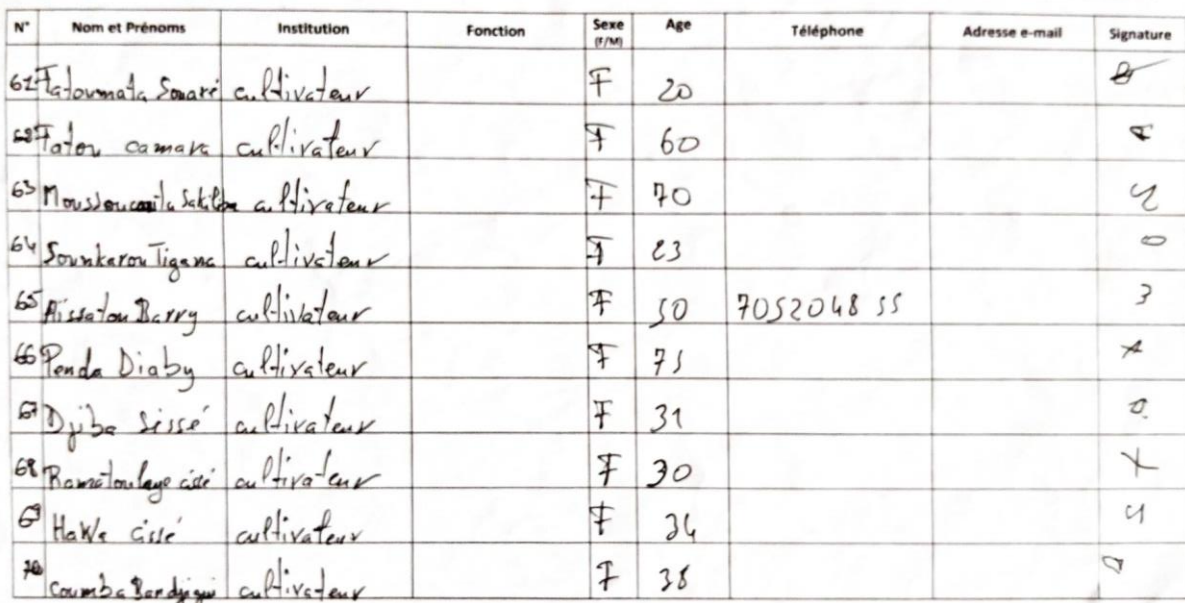 N° Nom et Prénoms Institution Fonction Sexe (F/M) Age Téléphone Adresse e-mail Signature
61 Fatoumata Souaré cultivateur F 20
62 Fatou camara cultivateur F 60
63 cultivateur F 70
64 Sounkarou Tigana cultivateur F 23
65 Aissatou Barry cultivateur F 50 7052048 55
66 Penda Diaby cultivateur F 75
67 Djiba sissé cultivateur F 31
68 Ramatoulaye cissé cultivateur F 30
69 HaWa cissé cultivateur F 34
70 Coumba cultivateur F 38